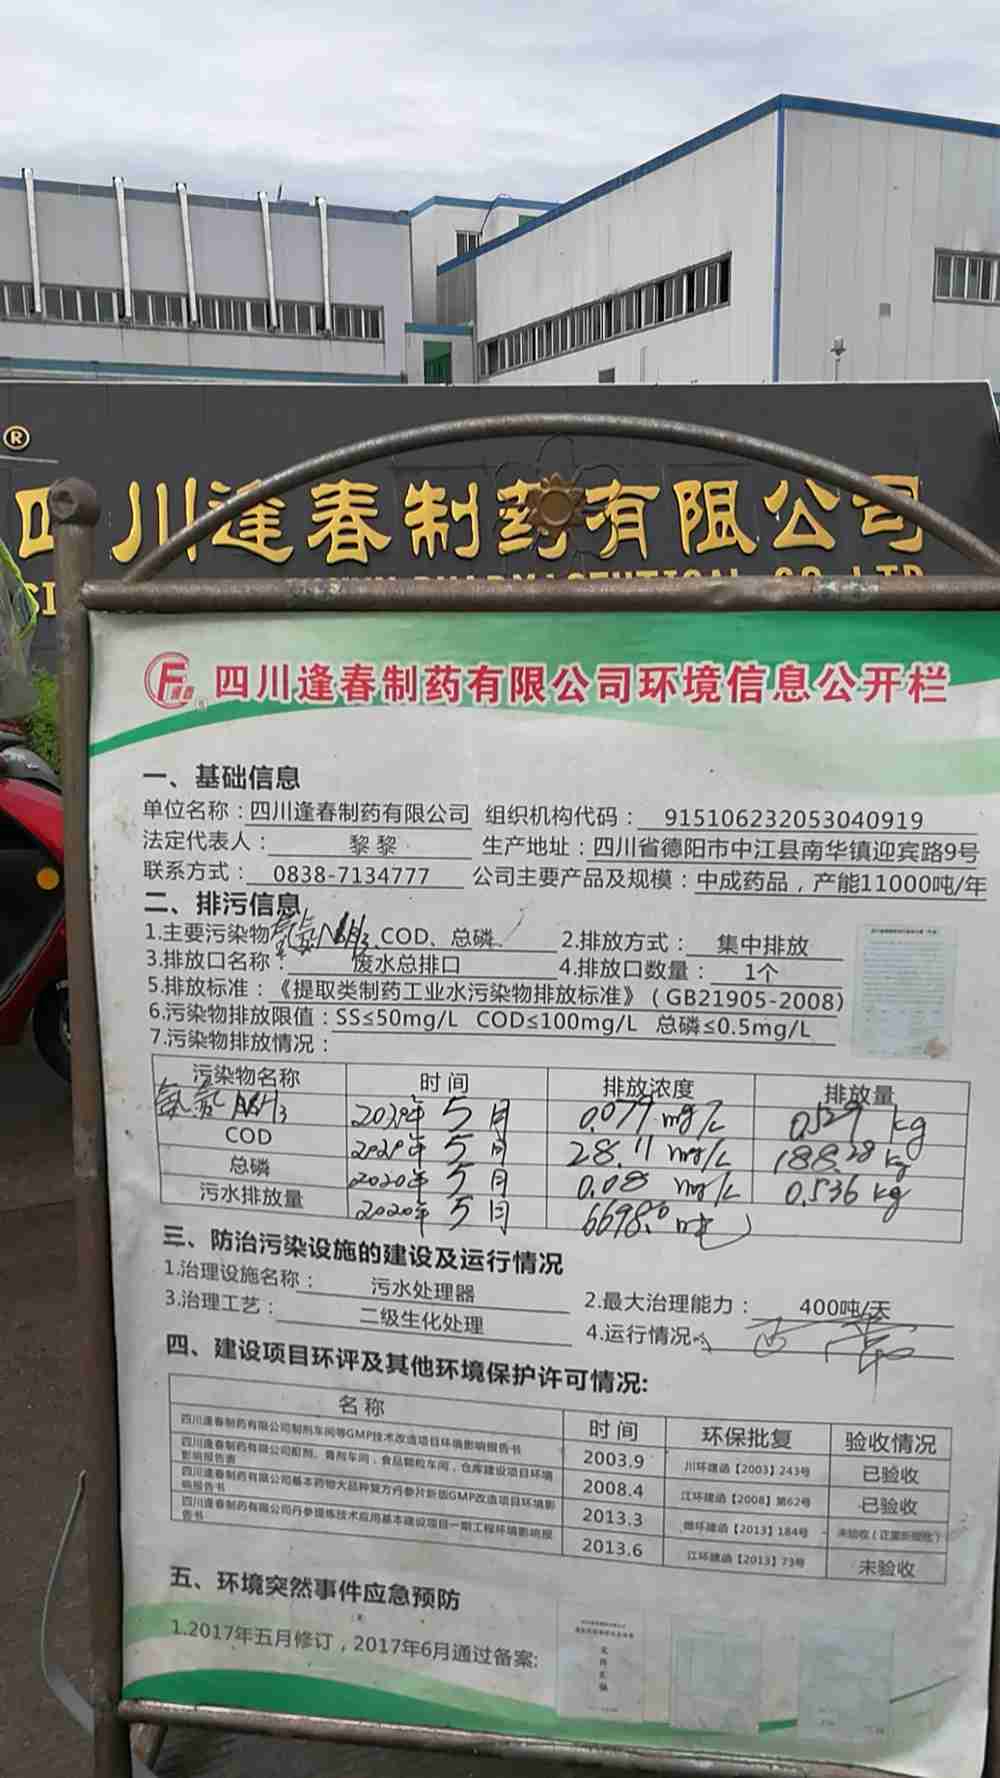 ®
四川逢春制药有限公司
四川逢春制药有限公司环境信息公开栏
一、基础信息
单位名称：四川逢春制药有限公司 组织机构代码： 915106232053040919
法定代表人： 黎黎 生产地址：四川省德阳市中江县南华镇迎宾路9号
联系方式： 0838-7134777 公司主要产品及规模：中成药品，产能11000吨/年
二、排污信息
1.主要污染物 氨氮NH3、COD、总磷 2.排放方式： 集中排放
3.排放口名称： 废水总排口 4.排放口数量： 1个
5.排放标准：《提取类制药工业水污染物排放标准》（GB21905-2008）
6.污染物排放限值：SS≤50mg/L COD≤100mg/L 总磷≤0.5mg/L
7.污染物排放情况：
污染物名称 时间 排放浓度 排放量
氨氮NH3 2020年5月 0.079 mg/L 0.529 kg
COD 2020年5月 28.11 mg/L 188.28 kg
总磷 2020年5月 0.08 mg/L 0.536 kg
污水排放量 2020年5月 6698.0吨
三、防治污染设施的建设及运行情况
1.治理设施名称： 污水处理器 2.最大治理能力： 400吨/天
3.治理工艺： 二级生化处理 4.运行情况：
四、建设项目环评及其他环境保护许可情况:
名称 时间 环保批复 验收情况
四川逢春制药有限公司制剂车间等GMP技术改造项目环境影响报告书 2003.9 川环建函【2003】243号 已验收
四川逢春制药有限公司酊剂、膏剂车间，食品颗粒车间，仓库建设项目环境影响报告表 2008.4 江环建函【2008】第62号 已验收
四川逢春制药有限公司基本药物大品种复方丹参片新版GMP改造项目环境影响报告书 2013.3 德环建函【2013】184号 未验收
四川逢春制药有限公司丹参提炼技术应用基本建设项目一期工程环境影响报告书 2013.6 江环建函【2013】73号 未验收
五、环境突然事件应急预防
1.2017年五月修订，2017年6月通过备案: